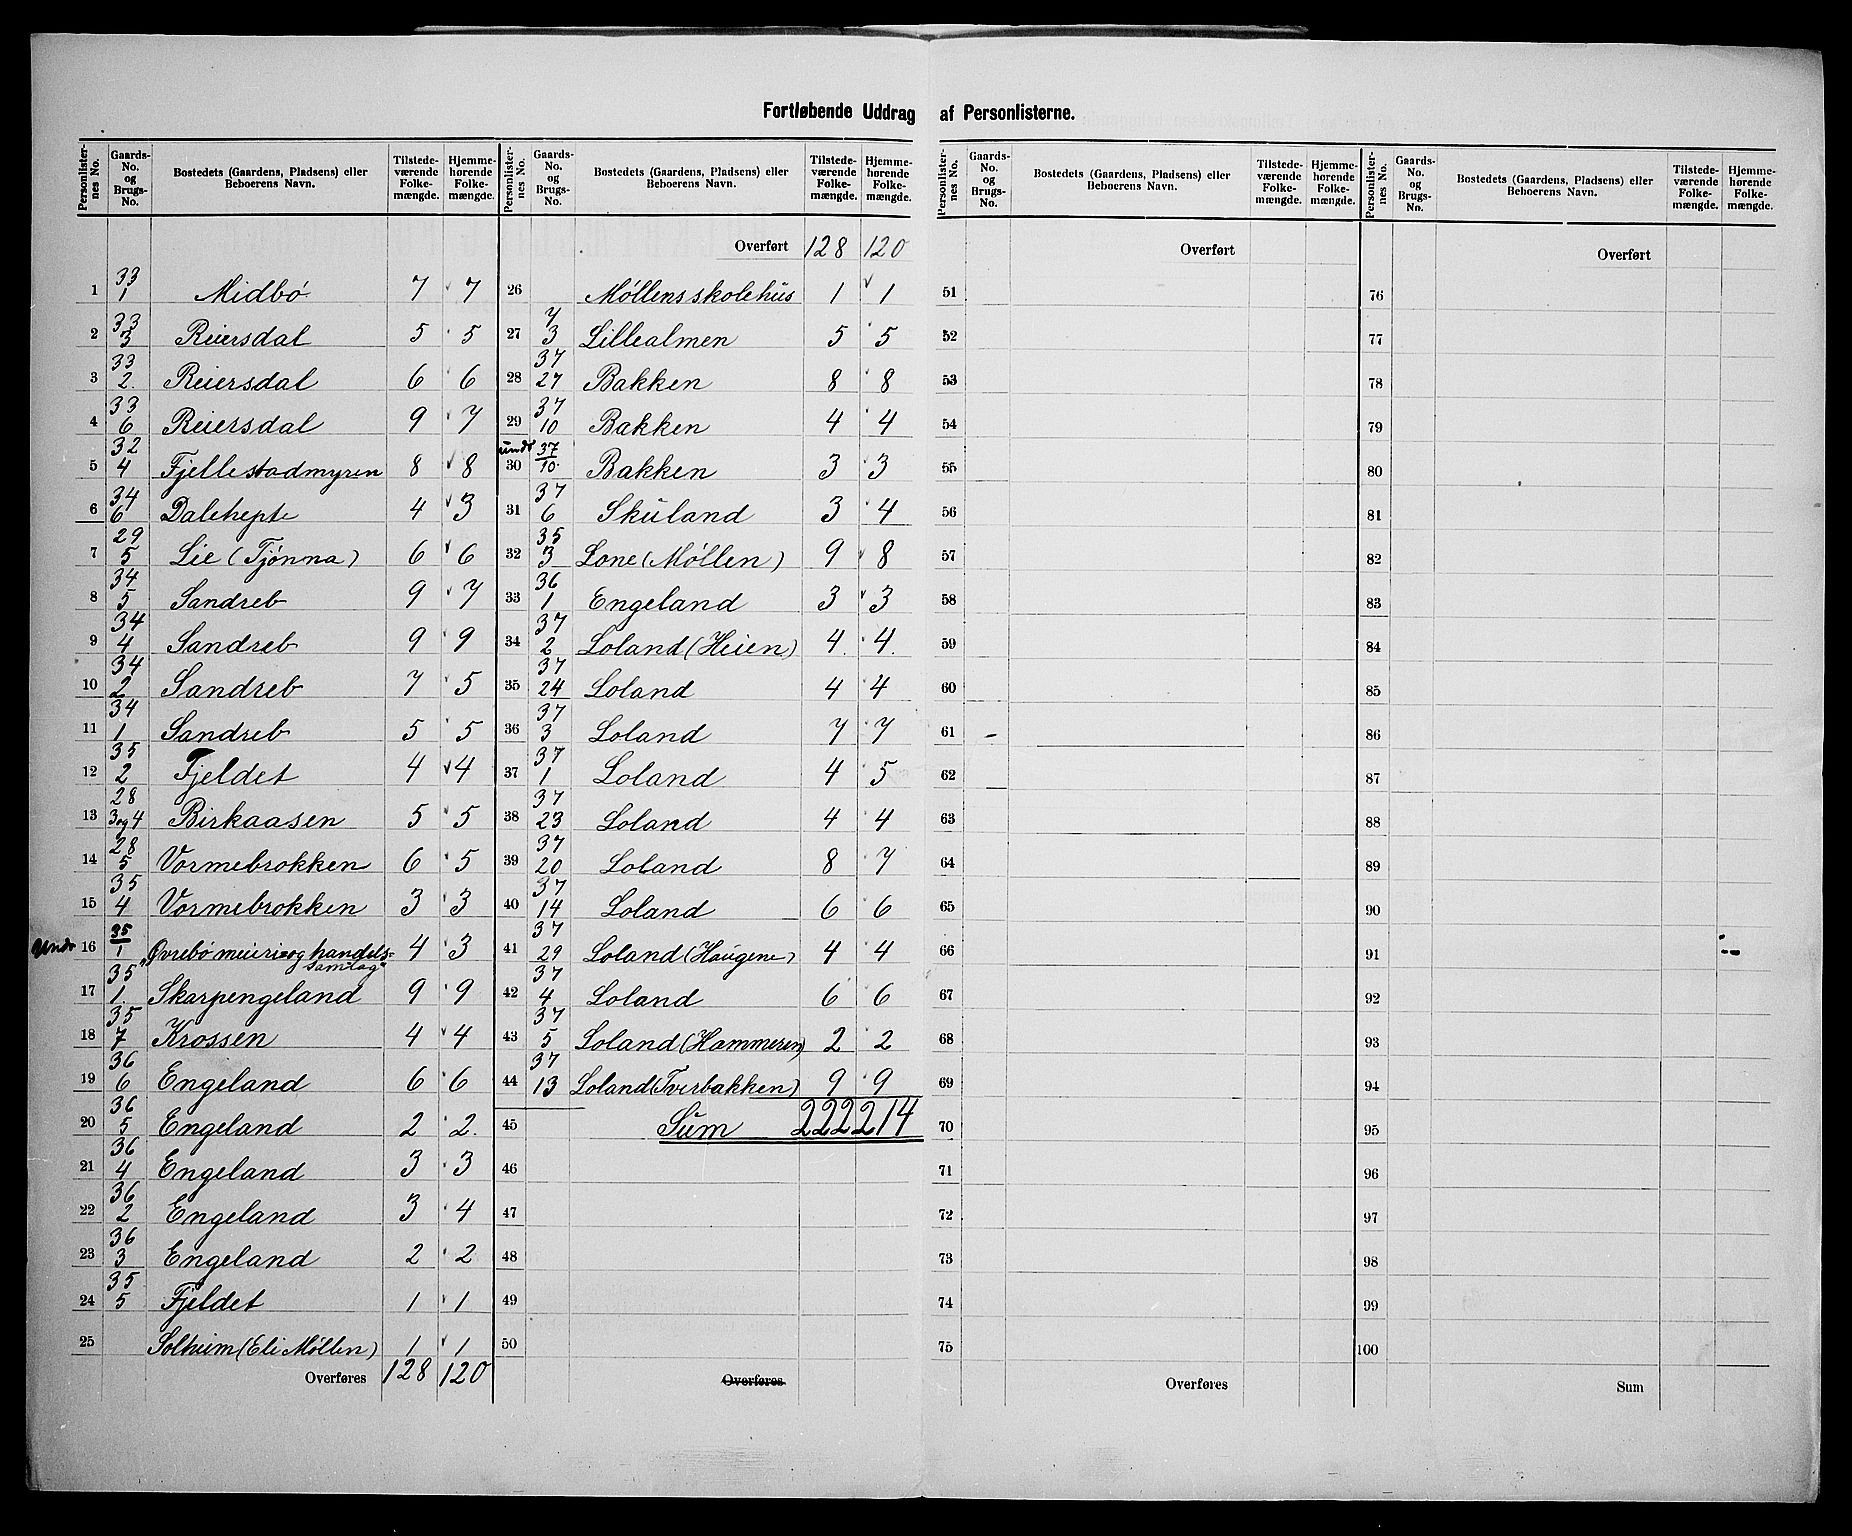 Fortløbende Uddrag af Personlisterne.
Personlister-nes No. | Gaards-No. og Brugs-No. | Bostedets (Gaardens, Pladsens) eller Beboerens Navn. | Tilstede-værende Folke-mængde. | Hjemme-hørende Folke-mængde.
1 33/1 Midbö 7 7
2 33/3 Reiersdal 5 5
3 33/2 Reiersdal 6 6
4 33/6 Reiersdal 9 7
5 32/4 Fjellestadmyren 8 8
6 34/6 Dalehepte 4 3
7 29/5 Lie (Tjønna) 6 6
8 34/5 Sandreb 9 7
9 34/4 Sandreb 9 9
10 34/2 Sandreb 7 5
11 34/1 Sandreb 5 5
12 35/2 Fjeldet 4 4
13 28/3og4 Birkaasen 5 5
14 28/5 Vormebrokken 6 5
15 35/4 Vormebrokken 3 3
undr 16 35/1 "Øvrebö meieri og handels-samlag" 4 3
17 35/1 Skarpengeland 9 9
18 35/7 Krossen 4 4
19 36/6 Engeland 6 6
20 36/5 Engeland 2 2
21 36/4 Engeland 3 3
22 36/2 Engeland 3 4
23 36/3 Engeland 2 2
24 35/5 Fjeldet 1 1
25 Solheim (Eli Møllen) 1 1
Overføres 128 120
Personlister-nes No. | Gaards-No. og Brugs-No. | Bostedets (Gaardens, Pladsens) eller Beboerens Navn. | Tilstede-værende Folke-mængde. | Hjemme-hørende Folke-mængde.
Overført 128 120
26 Møllens skolehus 1 1
27 7/3 Lillealmen 5 5
28 37/27 Bakken 8 8
29 37/10 Bakken 4 4
undr 30 37/10 Bakken 3 3
31 37/6 Skuland 3 4
32 35/3 Lone (Møllen) 9 8
33 36/1 Engeland 3 3
34 37/2 Loland (Heien) 4 4
35 37/24 Loland 4 4
36 37/3 Loland 7 7
37 37/1 Loland 4 5
38 37/23 Loland 4 4
39 37/20 Loland 8 7
40 37/14 Loland 6 6
41 37/29 Loland (Haugene) 4 4
42 37/4 Loland 6 6
43 37/5 Loland (Hammeren) 2 2
44 37/13 Loland (Tverbakken) 9 9
45 Sum 222 214
46
47
48
49
50
Overføres
Personlister-nes No. | Gaards-No. og Brugs-No. | Bostedets (Gaardens, Pladsens) eller Beboerens Navn. | Tilstede-værende Folke-mængde. | Hjemme-hørende Folke-mængde.
Overført
51
52
53
54
55
56
57
58
59
60
61
62
63
64
65
66
67
68
69
70
71
72
73
74
75
Overføres
Personlister-nes No. | Gaards-No. og Brugs-No. | Bostedets (Gaardens, Pladsens) eller Beboerens Navn. | Tilstede-værende Folke-mængde. | Hjemme-hørende Folke-mængde.
Overført
76
77
78
79
80
81
82
83
84
85
86
87
88
89
90
91
92
93
94
95
96
97
98
99
100
Sum